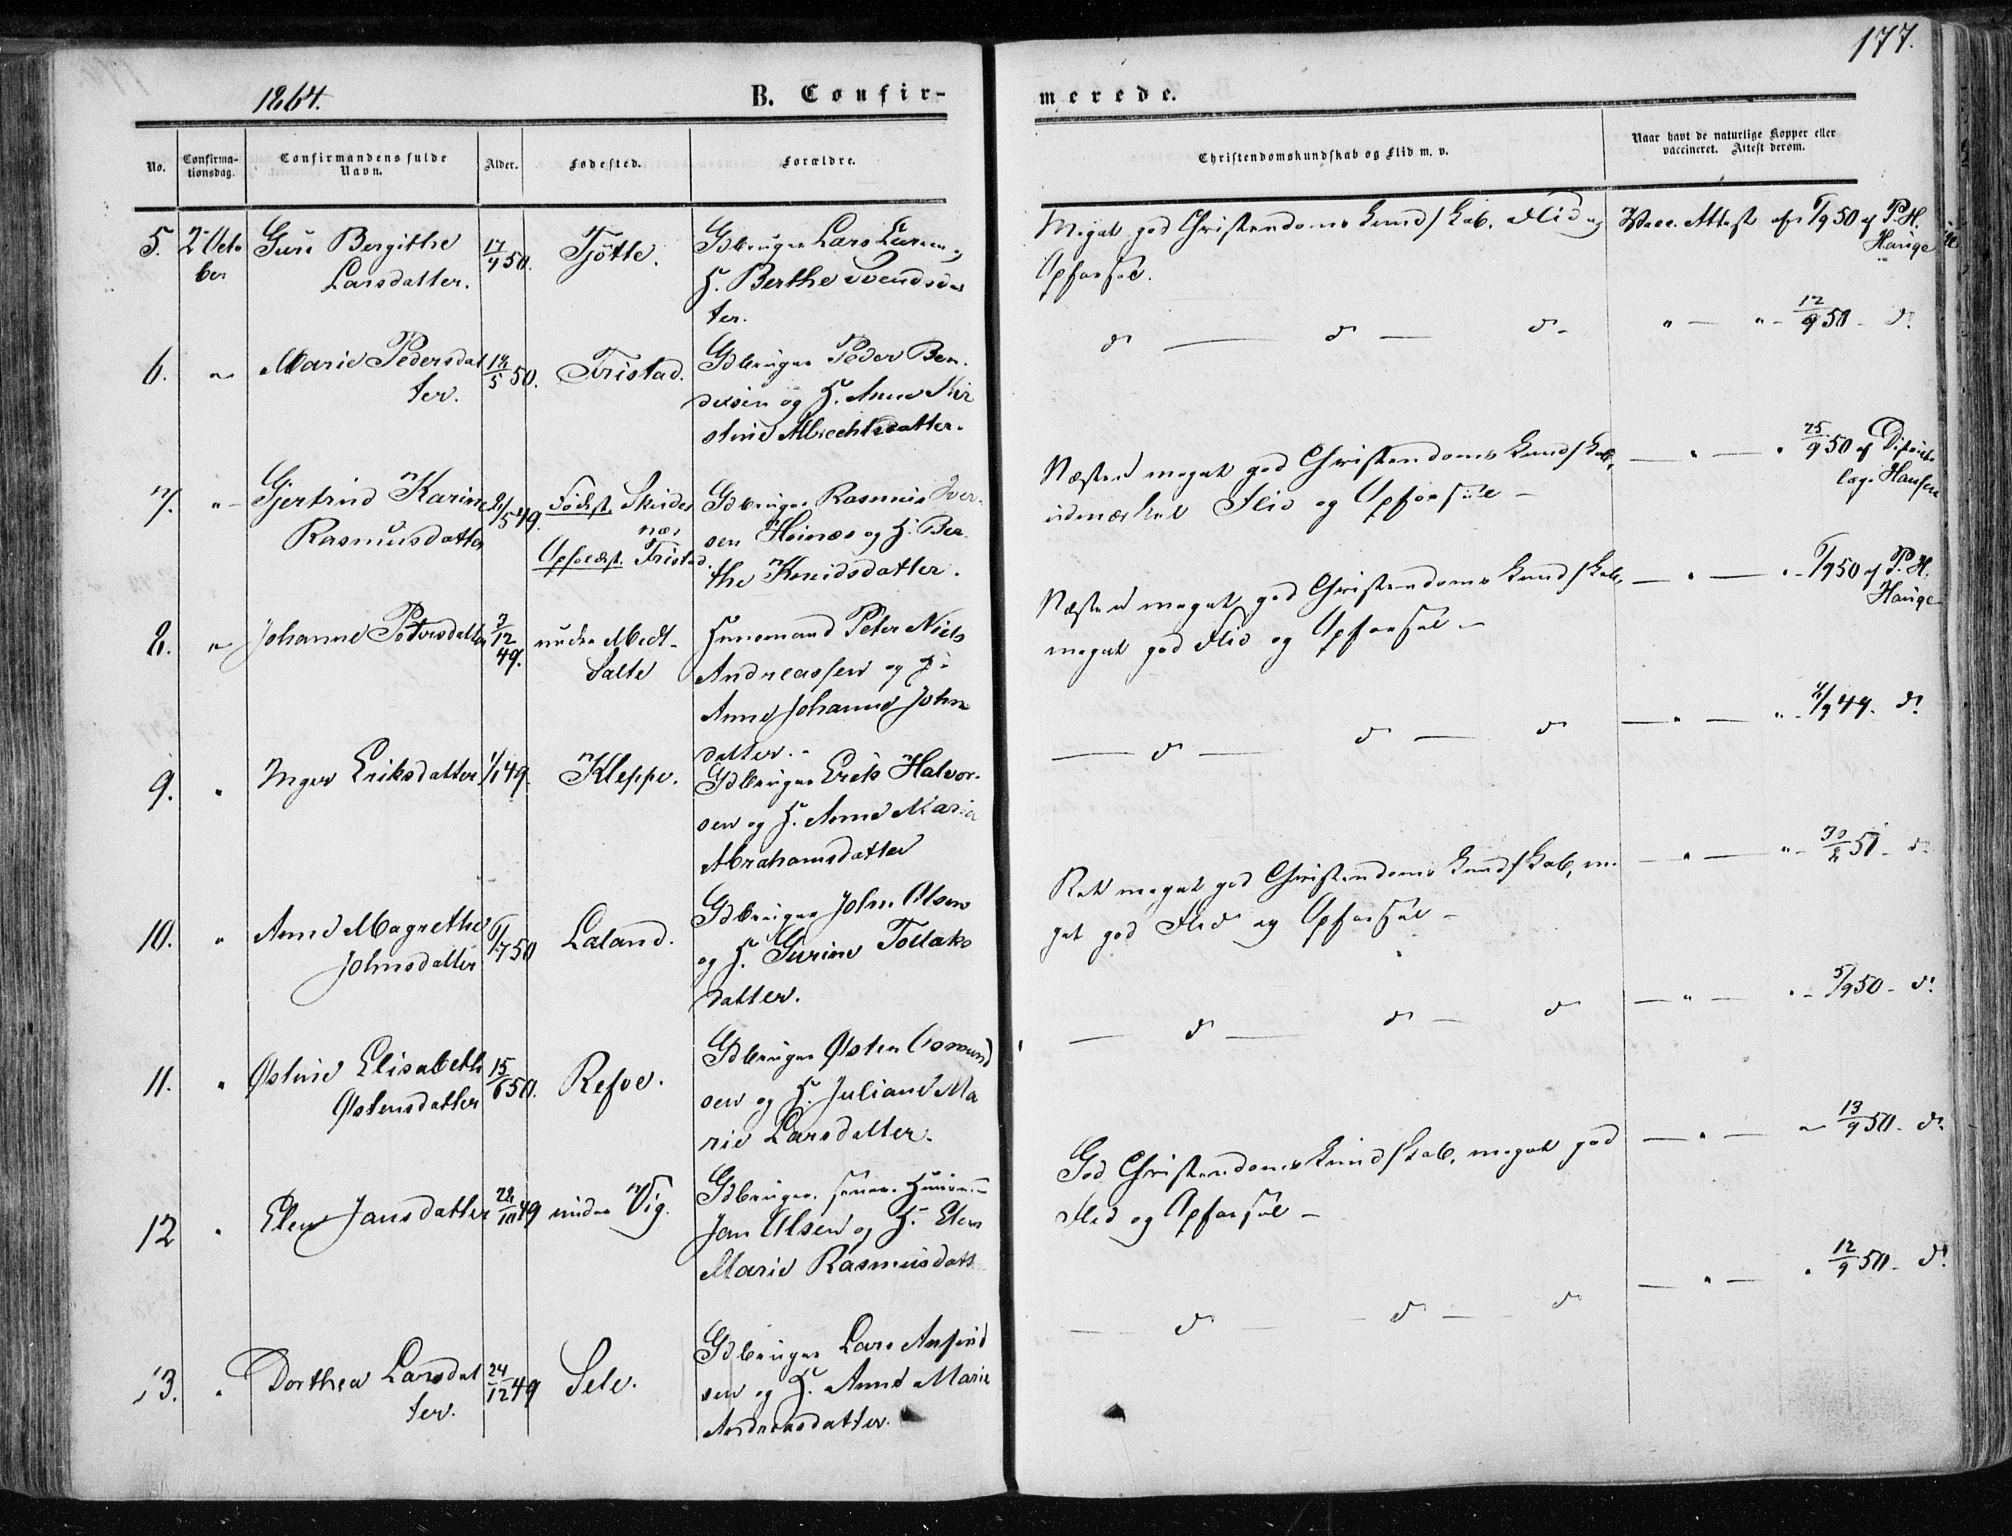 177.
1864.
B. Confir-
merede.
No.
Confirma-
tionsdag.
Confirmandens fulde
Navn.
Alder.
Fødested.
Forældre.
Christendomskundskab og Flid m. v.
Naar havt de naturlige Kopper eller
vaccineret. Attest derom.
5. 2 Octo Guri Bergithe 17/4 50. Tjøtte. Gdbruger Lars Larsen,
ber Larsdatter. H. Berthe Svendsdat
ter.
Meget god Christendomskundskab, Flid og
Opførsel.
Vacc. Attest af 6/9 50 af P. H.
Hauge
6. " Marie Pedersdat 18/5 50. Tristad. Gdbruger Peder Ben
ter. dixsen og H. Anne Kir
stine Albrechtsdatter.
do — do — do —
" — " — 12/9 50 — do
7. " Gjertrud Karine 21/5 49. Født Skeides Gdbruger Rasmus Iver
Rasmusdatter næs sen Hoinæs og H. Ber
Opfødt. Tristad. the Knudsdatter.
Næsten meget god Christendomskundskab,
udmærket Flid og Opførsel —
— " — " 25/9 50 af Districts
læge Hansen
8. " Johanne Petersdatter 3/12 49. under Medt- Huusmand Peter Niels
Salte Andreassen og H.
Anne Johanne Johns
datter. -
Næsten meget god Christendomskundskab,
meget god Flid og Opførsel —
— " — " — 6/9 50 af P. H.
Hauge
9. " Inger Eriksdatter 1/1 49. Kleppe. Gdbruger Erik Halvor-
sen og H. Anne Maria
Abrahamsdatter
— do — do — do
— " — " — /9 49. do
10. " Anne Magrethe 6/7 50 Laland. Gdbruger John Olsen
Johnsdatter og H. Gurine Tollaks
datter.
Ret meget god Christendomskundskab, me
get god Flid og Opførsel —
— " — " — 30/8 51 — do
11. " Østine Elisabeth 15/6 50. Refve. Gdbruger Østen
Østensdatter sen og H. Juliane Ma
rie Larsdatter.
— do — do — do
— " — " — 5/9 50 — do
12 " Elen Jansdatter 28/10 49 under Vig. Gdbruger. Huusm.
Jan Olsen og H. Elen
Marie Rasmusdatt
God Christendomskundskab, meget god
Flid og Opførsel —
— " — " 13/9 50 — do
13. " Dorthea Larsdat 24/12 49 Sele. Gdbruger Lars Anfind
ter. sen og H. Anne Marie
Andreasdatter.
— do — do — do
— " — " 12/9 50 — do